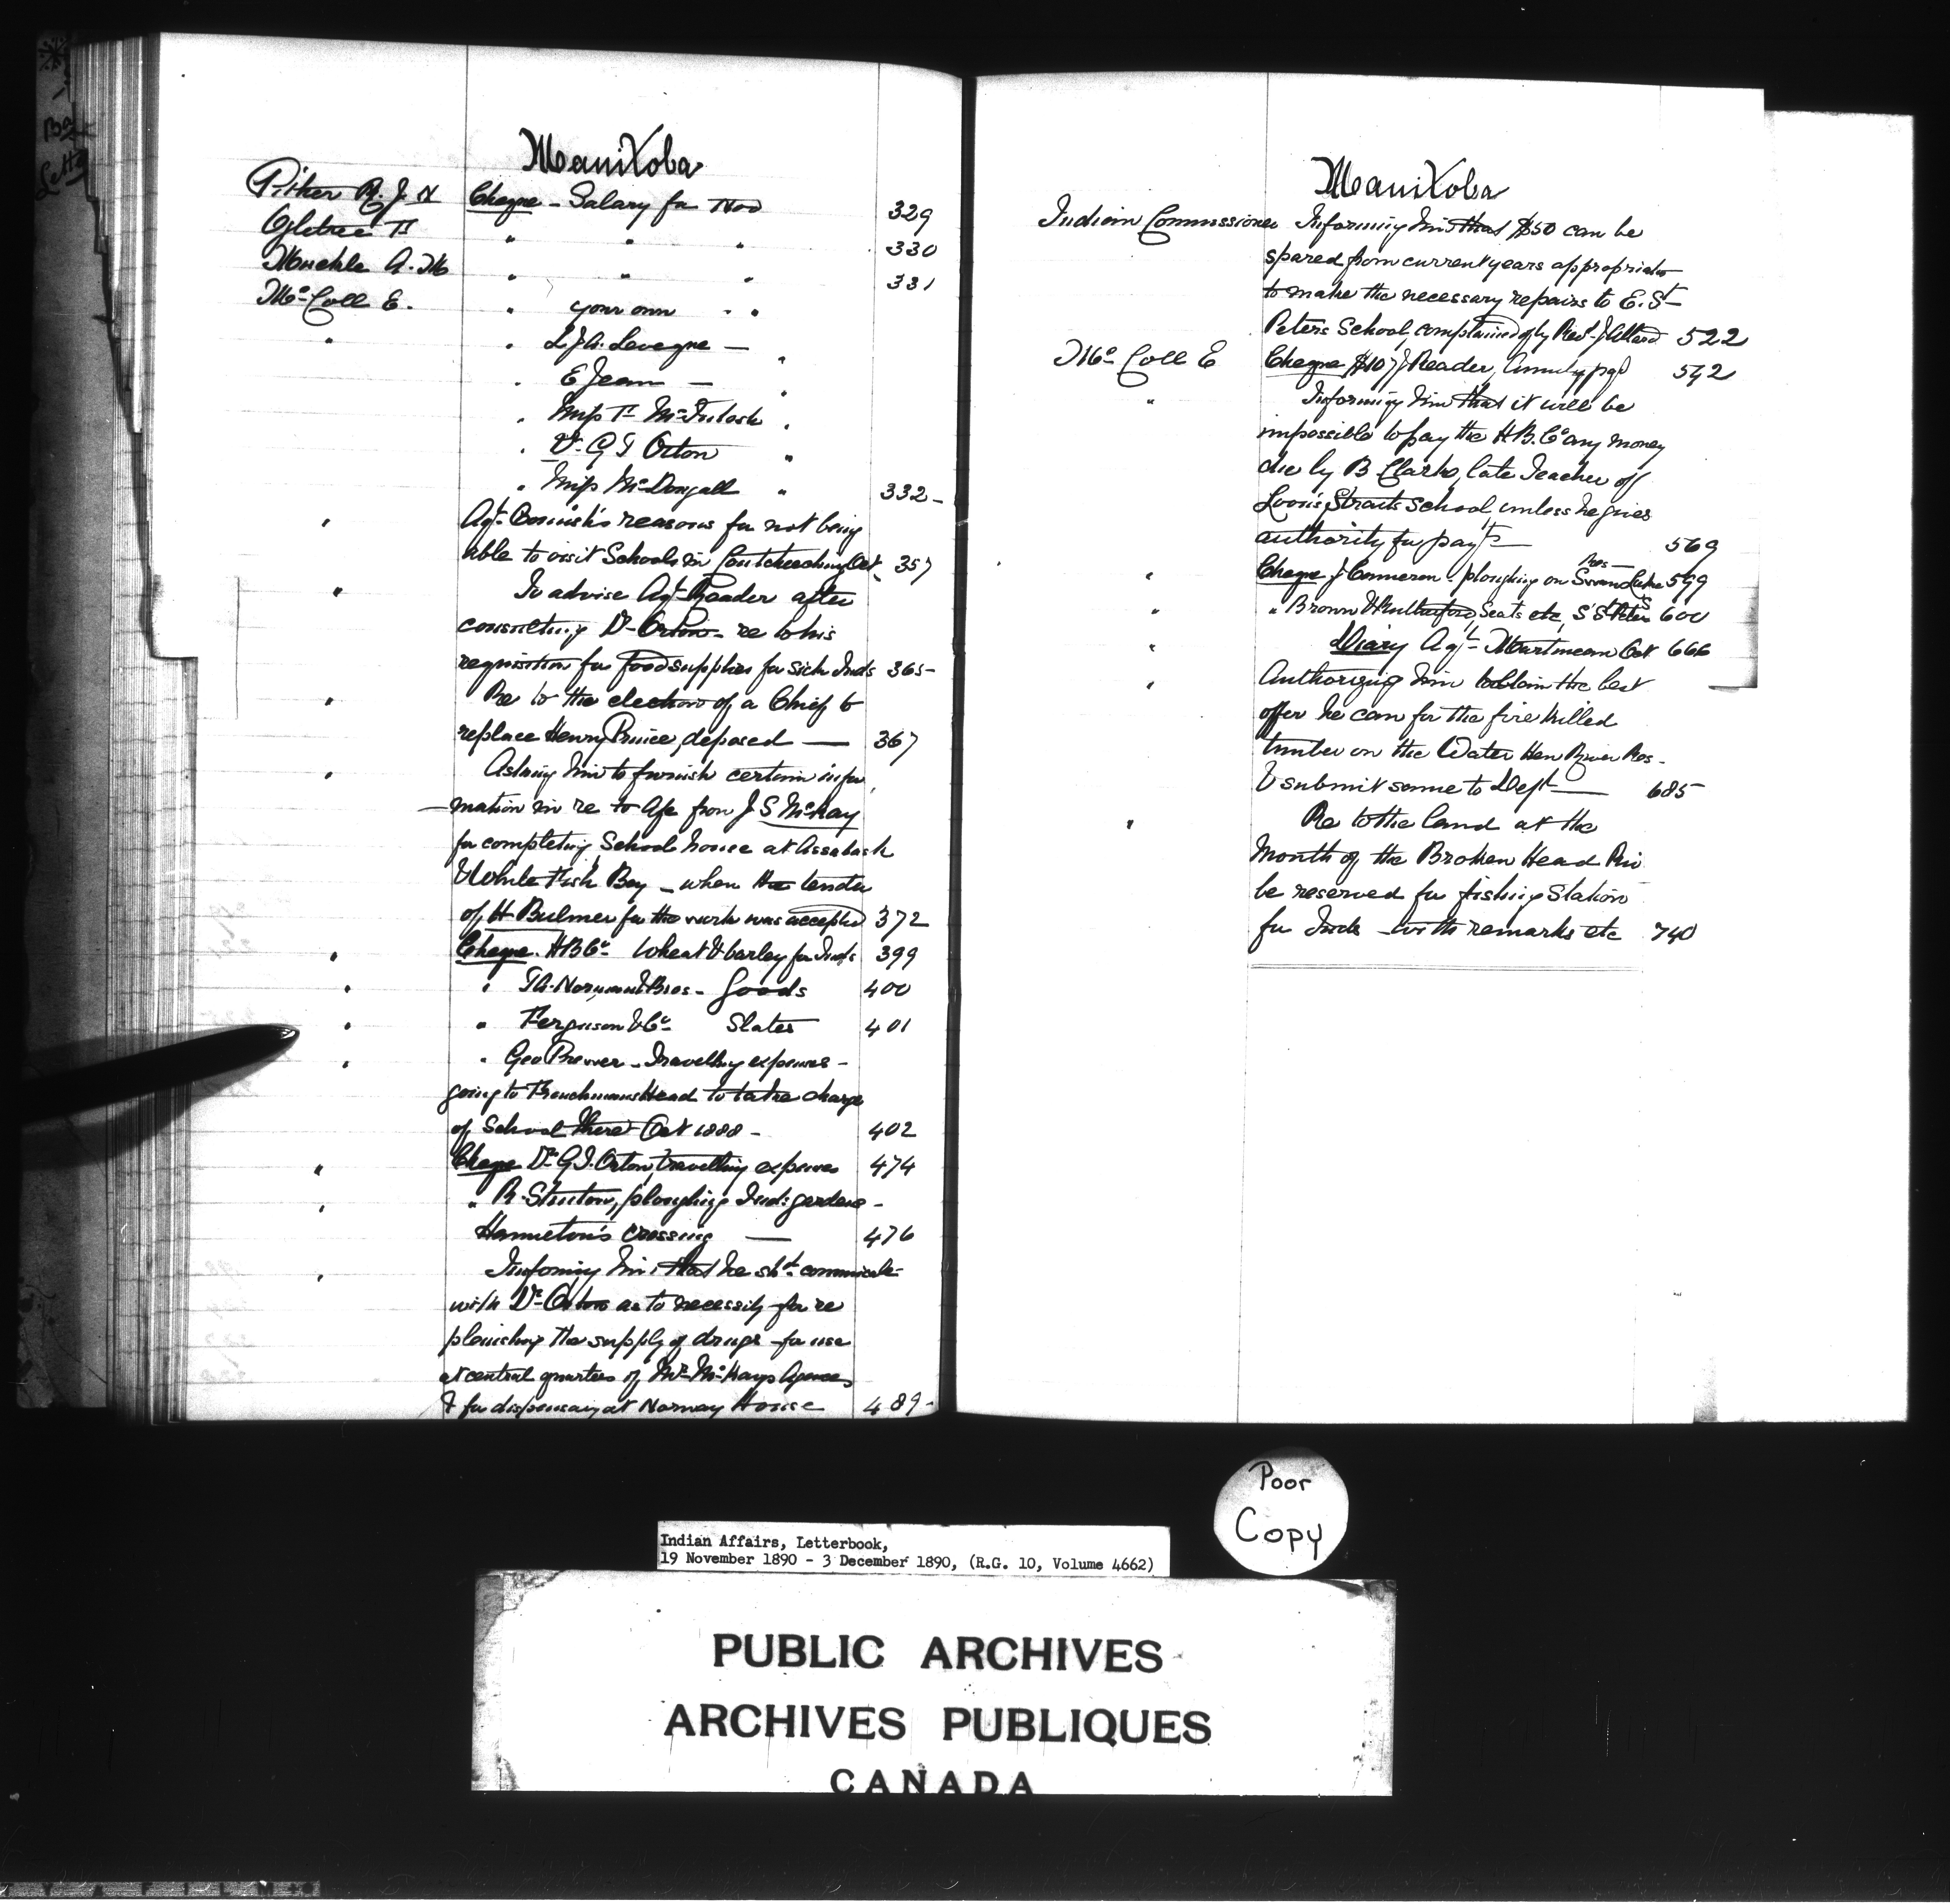 Manitoba
Pither R. J. N Cheque - Salary for Nov 329
Ogletree F " " " 330
Muckle A. M " " " 331
McColl E. " your own " "
" " L. J. A. Leveque — "
" E Jean — "
" Miss F McIntosh "
" Dr. G T Orton "
" Miss McDougall " 332-
" Agt. Cornish's reasons for not being
able to visit Schools in Coutcheeching Oct. 357
" To advise Agt. Reader after
consulting Dr Orton re to his
requisition for food supplies for sick Inds 365-
" Re to the election of a Chief to
replace Henry Prince, deposed — 367
" Asking him to furnish certain infor
mation in re to a/c from J S McKay
for completing School house at Assabask
& White Fish Bay - when the tender
of H Bulmer for the work was accepted 372
" Cheque. H B Co- Wheat & barley for Inds 399
" " Bros - Goods 400
" " Ferguson & Co- Slates 401
" " Geo Prewer - Travelling expenses -
going to Frenchmans Head to take charge
of School there Oct 1888 - 402
" Cheque Dr G. T. Orton, travelling expenses 474
" " R. Stinton, ploughing Inds gardens -
Hamelton's crossing — 476
" Informing him that he shd. communicate
with Dr- Orton as to necessity for re
plenishing the supply of drugs for use
at central quarters of Mr McKays Agency
& for dispensary at Norway House 489-
Manitoba
Indian Commissioner Informing him that $50 can be
spared from current years appropriation
to make the necessary repairs to E. St-
Peters School, complained of by Revd. J Allard 522
McColl E Cheque $107 J Reader, Annuity pd 542
" Informing him that it will be
impossible to pay the H. B. Co any money
due by B Clarke, late Teacher of
Loon's Straits School, unless he gives
authority for payt — 569
Res —
" Cheque J Cameron. ploughing on Swan Lake 599
" " Brown & Rutherford, Seats etc, S St Peters 600
" Diary Agt- Martineau Oct 666
" Authorizing him to obtain the best
offer he can for the fire killed
timber on the Water Hen River Res -
& submit same to Dept — 685
" Re to the land at the
Mouth of the Broken Head Riv
be reserved for fishing Station
for Inds - with remarks etc 740
Poor
Copy
Indian Affairs, Letterbook,
19 November 1890 - 3 December 1890, (R.G. 10, Volume 4662)
PUBLIC ARCHIVES
ARCHIVES PUBLIQUES
CANADA